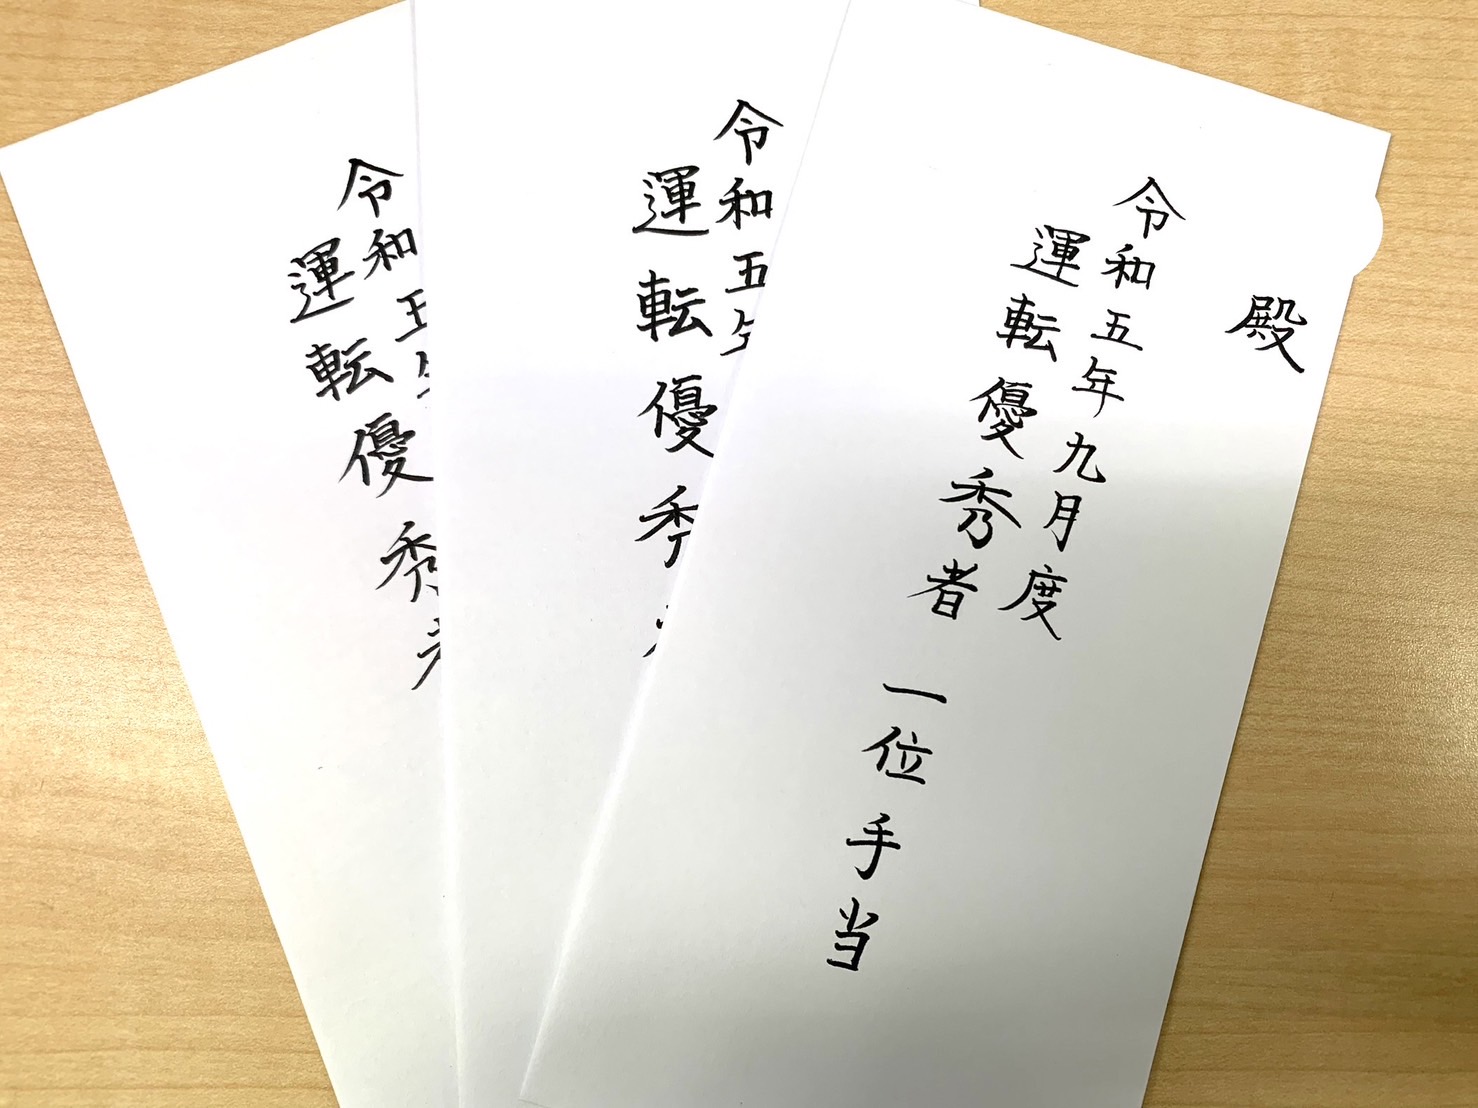 殿
令和五年九月度
運転優秀者 一位手当
令和五年
運転優秀
令和五年
運転優秀者